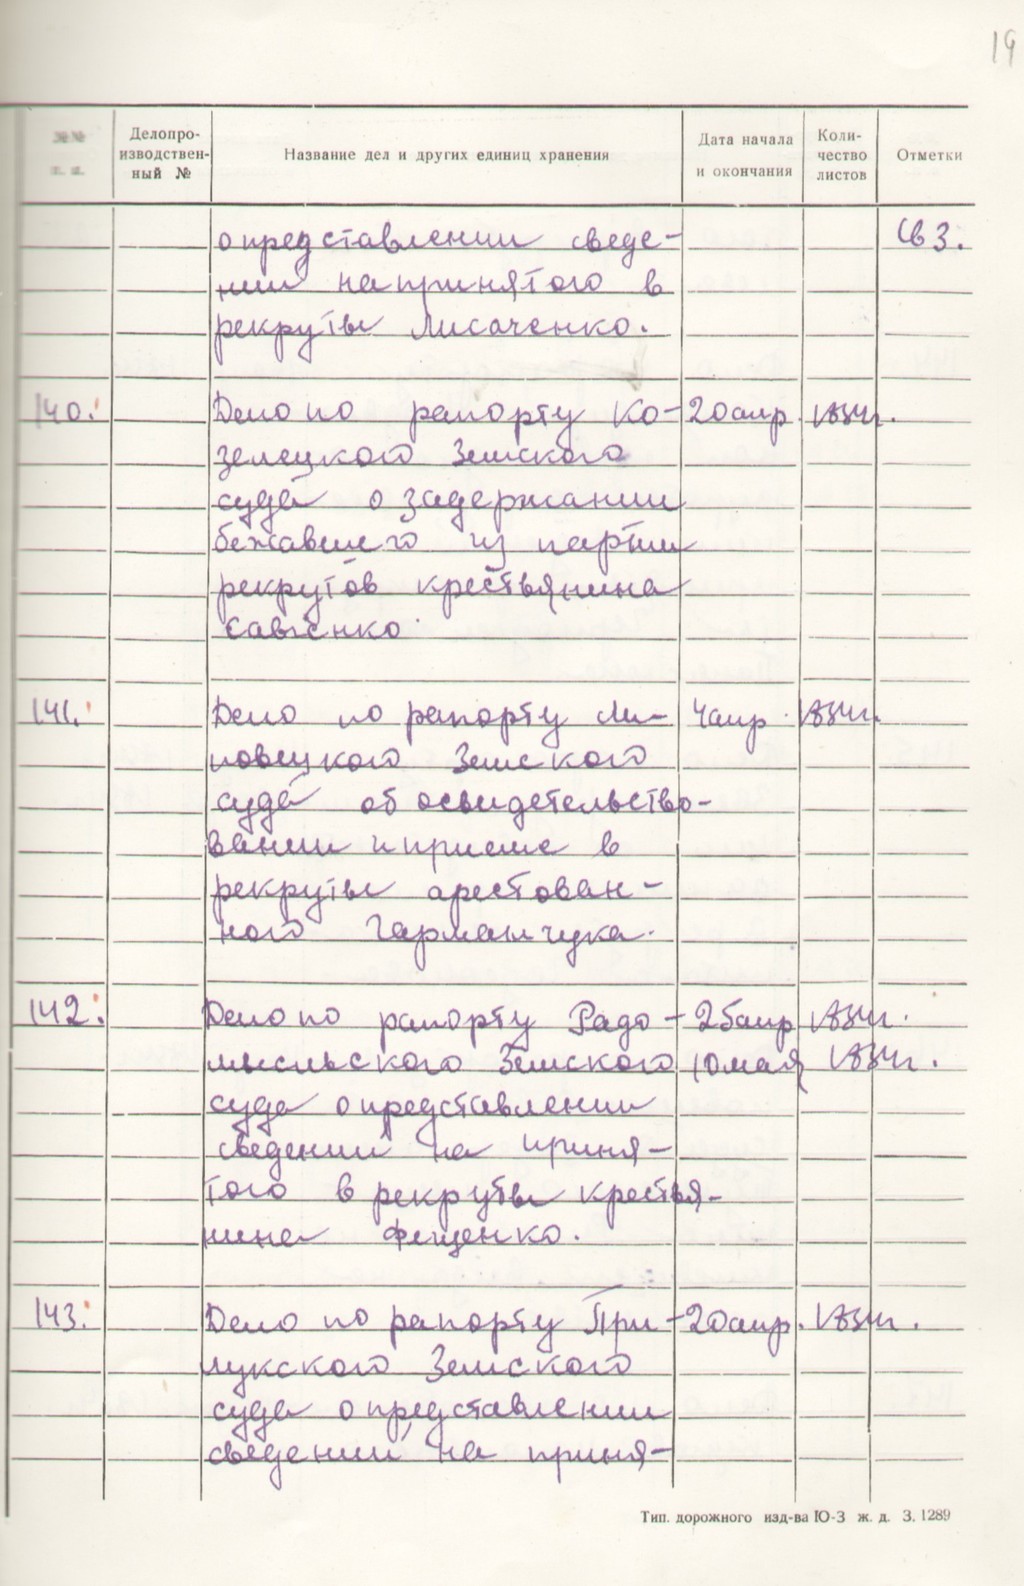 19
№№ п. п.
Делопро-
изводствен-
ный №
Название дел и других единиц хранения
Дата начала
и окончания
Коли-
чество
листов
Отметки
о представлении сведе- Св 3.
нии на принятого в
рекруты Лисаченко.
140. Дело по рапорту Ко- 20 апр. 1834г.
зелецкого Земского
суда о задержании
бежавшего из партии
рекрутов крестьянина
Савченко.
141. Дело по рапорту Ли- 4 апр. 1834г.
повецкого Земского
суда об освидетельство-
вании и приеме в
рекруты арестован-
ного Гарманчука.
142. Дело по рапорту Радо- 25 апр 1834г.
мысльского Земского 10 мая 1834г.
суда о представлении
сведений на приня-
того в рекруты крестья-
нина Фещенко.
143. Дело по рапорту При- 20 апр. 1834г.
лукского Земского
суда о представлении
сведений на приня-
Тип. дорожного изд-ва Ю-З ж. д. З. 1289